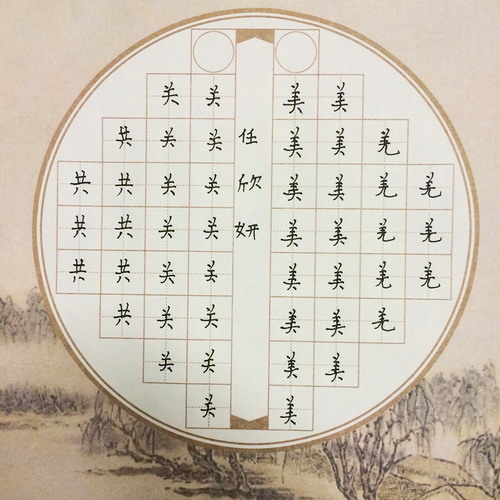 羌羌羌
羌羌羌羌羌
美美美美美美美
美美美美美美美美
任欣妍
关关关关关关关关
关关关关关关关
共共共共共
共共共